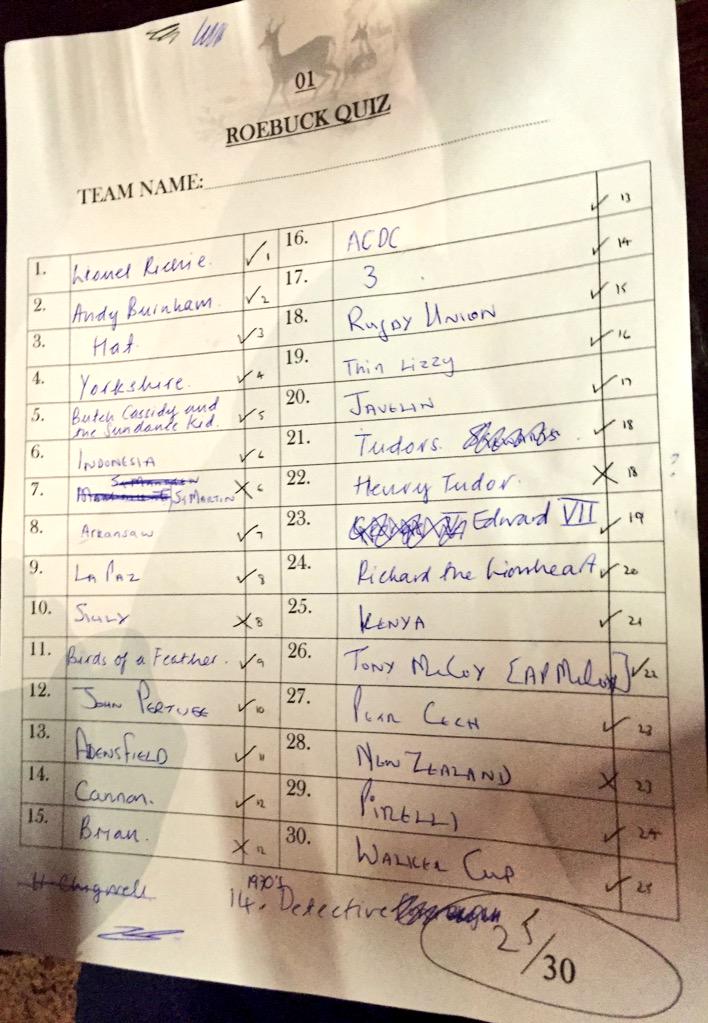 01
ROEBUCK QUIZ
TEAM NAME:
1. Lionel Richie. ✓ 1
2. Andy Burnham. ✓ 2
3. Hat. ✓ 3
4. Yorkshire. ✓ 4
5. Butch Cassidy and the Sundance Kid. ✓ 5
6. INDONESIA ✓ 6
7. St MARTIN X 6
8. Arkansaw ✓ 7
9. LA PAZ ✓ 8
10. SICILY X 8
11. Birds of a Feather. ✓ 9
12. JOHN PERTWEE ✓ 10
13. ADENSFIELD ✓ 11
14. Cannon. ✓ 12
15. Brian. X 12
16. ACDC ✓ 13
17. 3. ✓ 14
18. RUGBY UNION ✓ 15
19. Thin Lizzy ✓ 16
20. JAVELIN ✓ 17
21. Tudors. ✓ 18
22. Henry Tudor. X 18 ?
23. Edward VII ✓ 19
24. Richard the Lionheart ✓ 20
25. KENYA ✓ 21
26. TONY McCOY [AP McCoy] ✓ 22
27. PETR CECH ✓ 23
28. NEW ZEALAND X 23
29. PIRELLI ✓ 24
30. WALKER CUP ✓ 25
H Chigwell
1970's
14. Detective
25/30